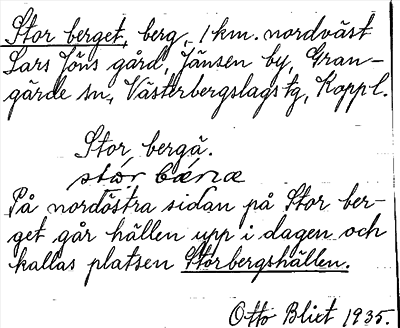 Stor berget, berg, 1 km. nordväst
Lars Jöns gård, Jänsen by, Gran-
gärde sn, Västerbergslags tg, Koppl.
Stor bergä.
stor bærıæ
På nordöstra sidan på Stor ber-
get går hällen upp i dagen och
kallas platsen Storbergshällen.
Otto Blixt 1935.